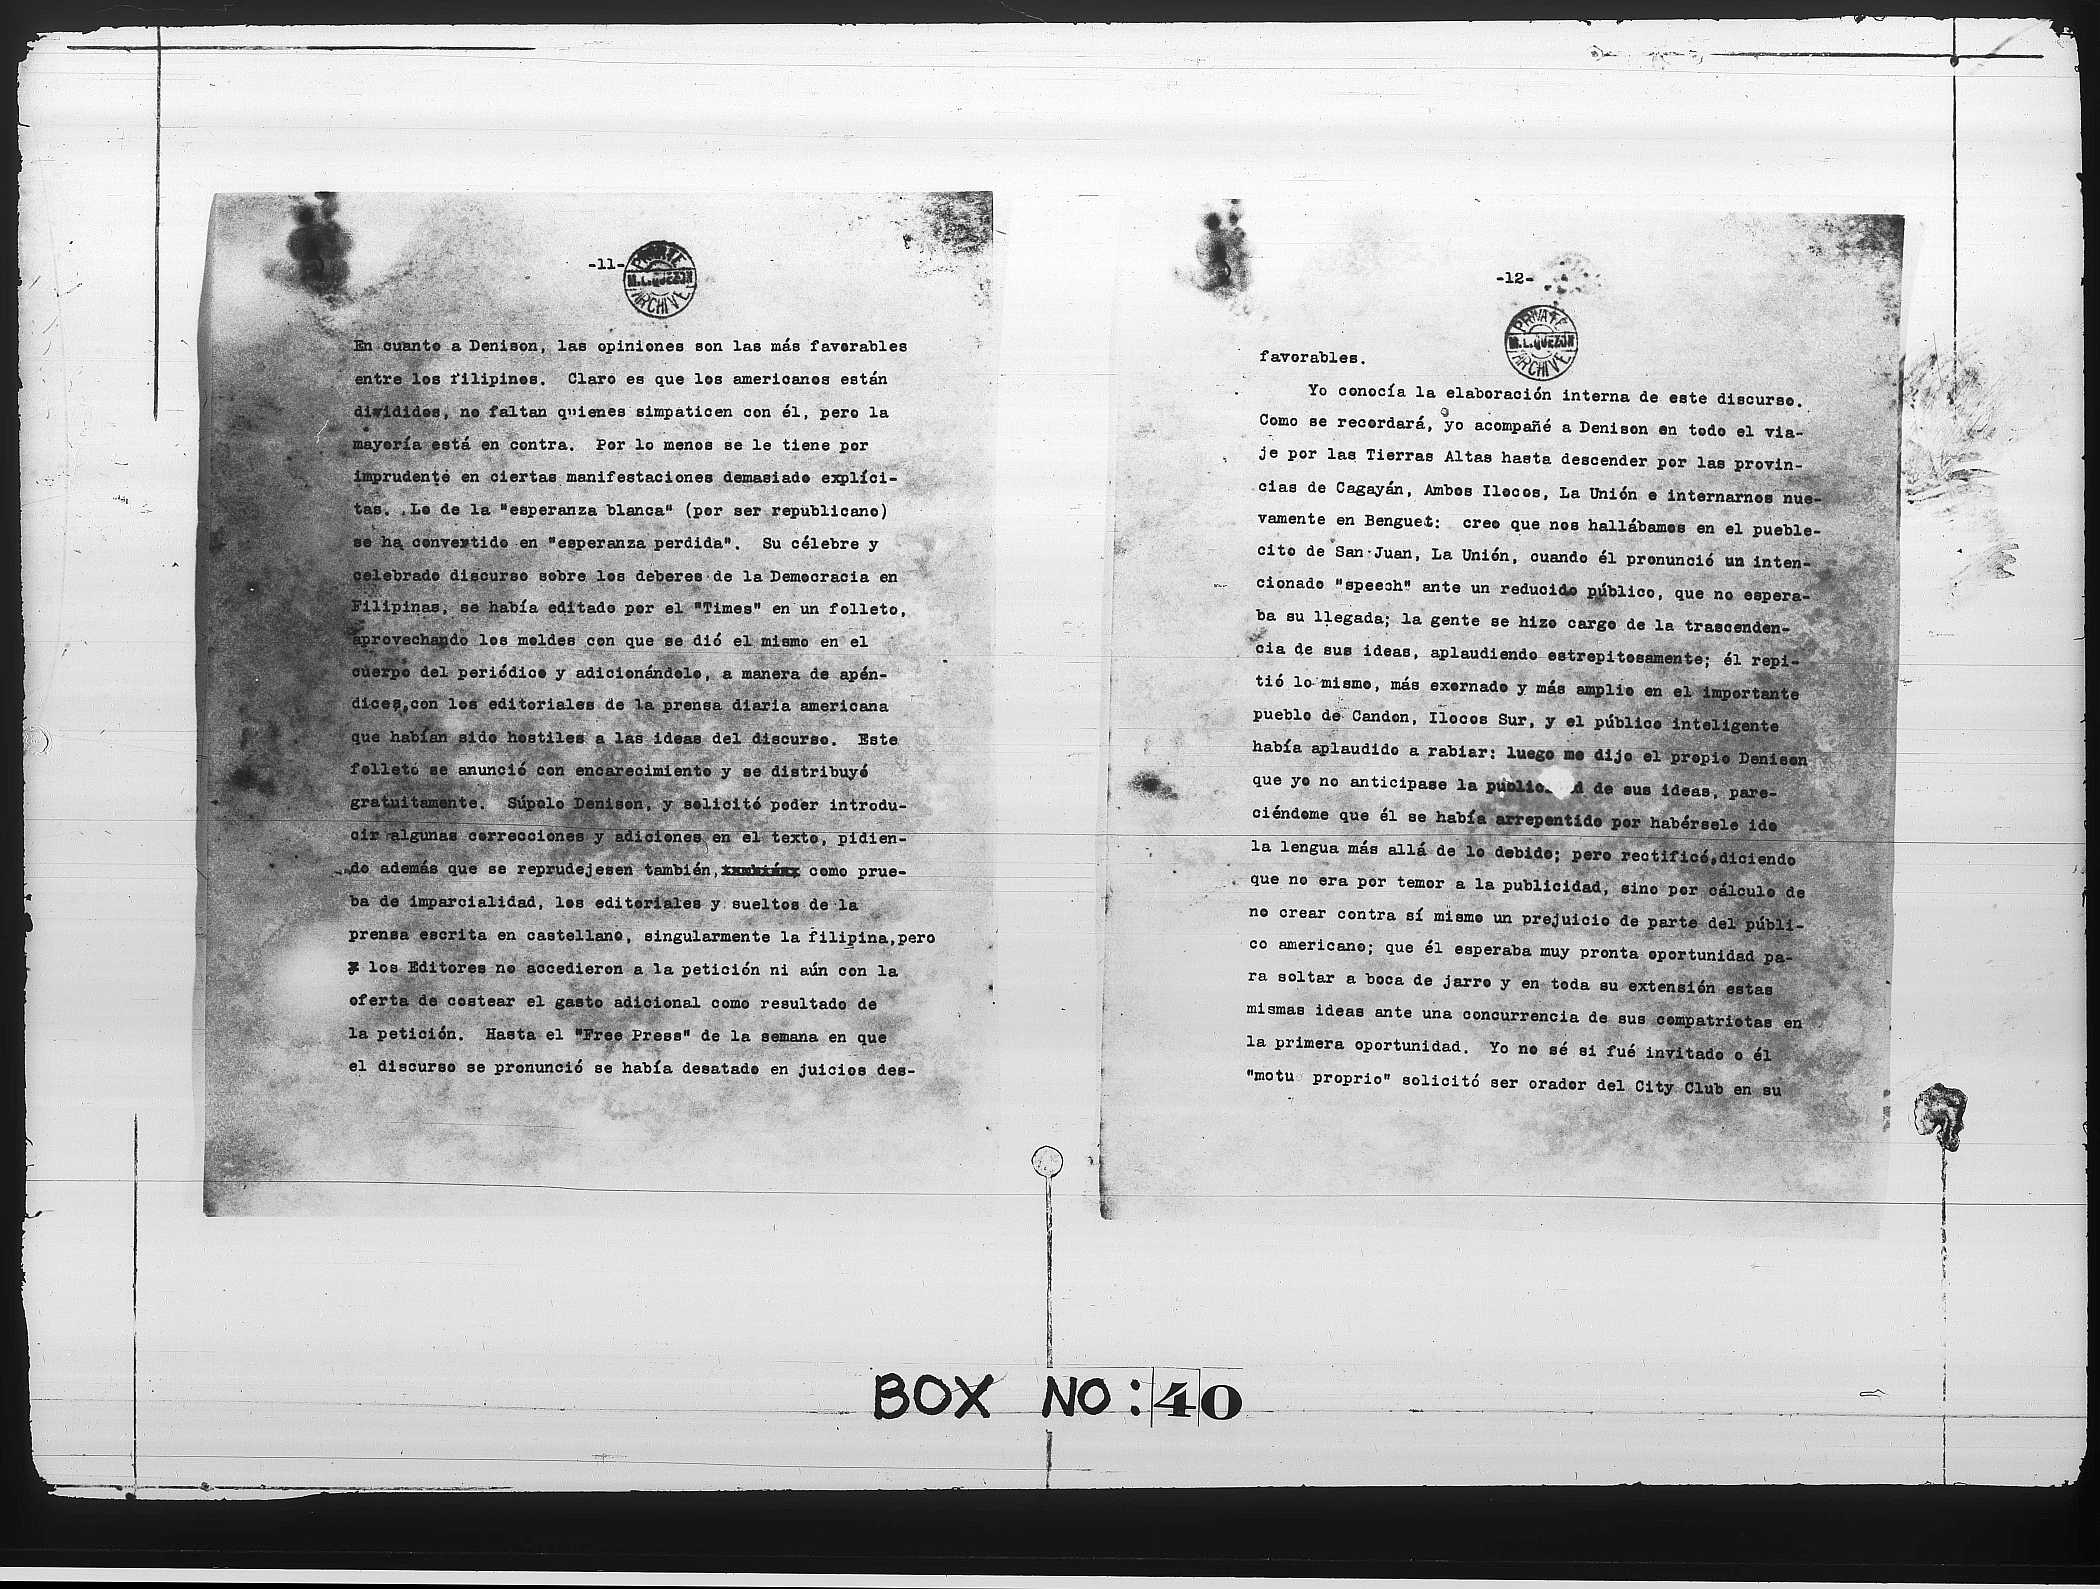 -11-
PRIVATE
M.L.QUEZON
ARCHIVE
En cuanto a Denison, las opiniones son las más favorables
entre los filipinos. Claro es que los americanos están
divididos, no faltan quienes simpaticen con él, pero la
mayoría está en contra. Por lo menos se le tiene por
imprudente en ciertas manifestaciones demasiado explíci-
tas. Lo de la "esperanza blanca" (por ser republicano)
se ha convertido en "esperanza perdida". Su célebre y
celebrado discurso sobre los deberes de la Democracia en
Filipinas, se había editado por el "Times" en un folleto,
aprovechando los moldes con que se dió el mismo en el
cuerpo del periódico y adicionándolo, a manera de apén-
dices, con los editoriales de la prensa diaria americana
que habían sido hostiles a las ideas del discurso. Este
folleto se anunció con encarecimiento y se distribuyó
gratuitamente. Súpolo Denison, y solicitó poder introdu-
cir algunas correcciones y adiciones en el texto, pidien-
do además que se reprudejesen también, como prue-
ba de imparcialidad, los editoriales y sueltos de la
prensa escrita en castellano, singularmente la filipina,pero
los Editores no accedieron a la petición ni aún con la
oferta de costear el gasto adicional como resultado de
la petición. Hasta el "Free Press" de la semana en que
el discurso se pronunció se había desatado en juicios des-
-12-
PRIVATE
M.L.QUEZON
ARCHIVE
favorables.
Yo conocía la elaboración interna de este discurso.
Como se recordará, yo acompañé a Denison en todo el via-
je por las Tierras Altas hasta descender por las provin-
cias de Cagayán, Ambos Ilocos, La Unión e internarnos nue-
vamente en Benguet: creo que nos hallábamos en el pueble-
cito de San Juan, La Unión, cuando él pronunció un inten-
cionado "speech" ante un reducido público, que no espera-
ba su llegada; la gente se hizo cargo de la trascenden-
cia de sus ideas, aplaudiendo estrepitosamente; él repi-
tió lo mismo, más exornado y más amplio en el importante
pueblo de Candon, Ilocos Sur, y el público inteligente
había aplaudido a rabiar: luego me dijo el propio Denison
que yo no anticipase la de sus ideas, pare-
ciéndome que él se había arrepentido por habérsele ido
la lengua más allá de lo debido; pero rectificó,diciendo
que no era por temor a la publicidad, sino por cálculo de
no crear contra sí mismo un prejuicio de parte del públi-
co americano; que él esperaba muy pronta oportunidad pa-
ra soltar a boca de jarro y en toda su extensión estas
mismas ideas ante una concurrencia de sus compatriotas en
la primera oportunidad. Yo no sé si fué invitado o él
"motu proprio" solicitó ser orador del City Club en su
BOX NO: 40